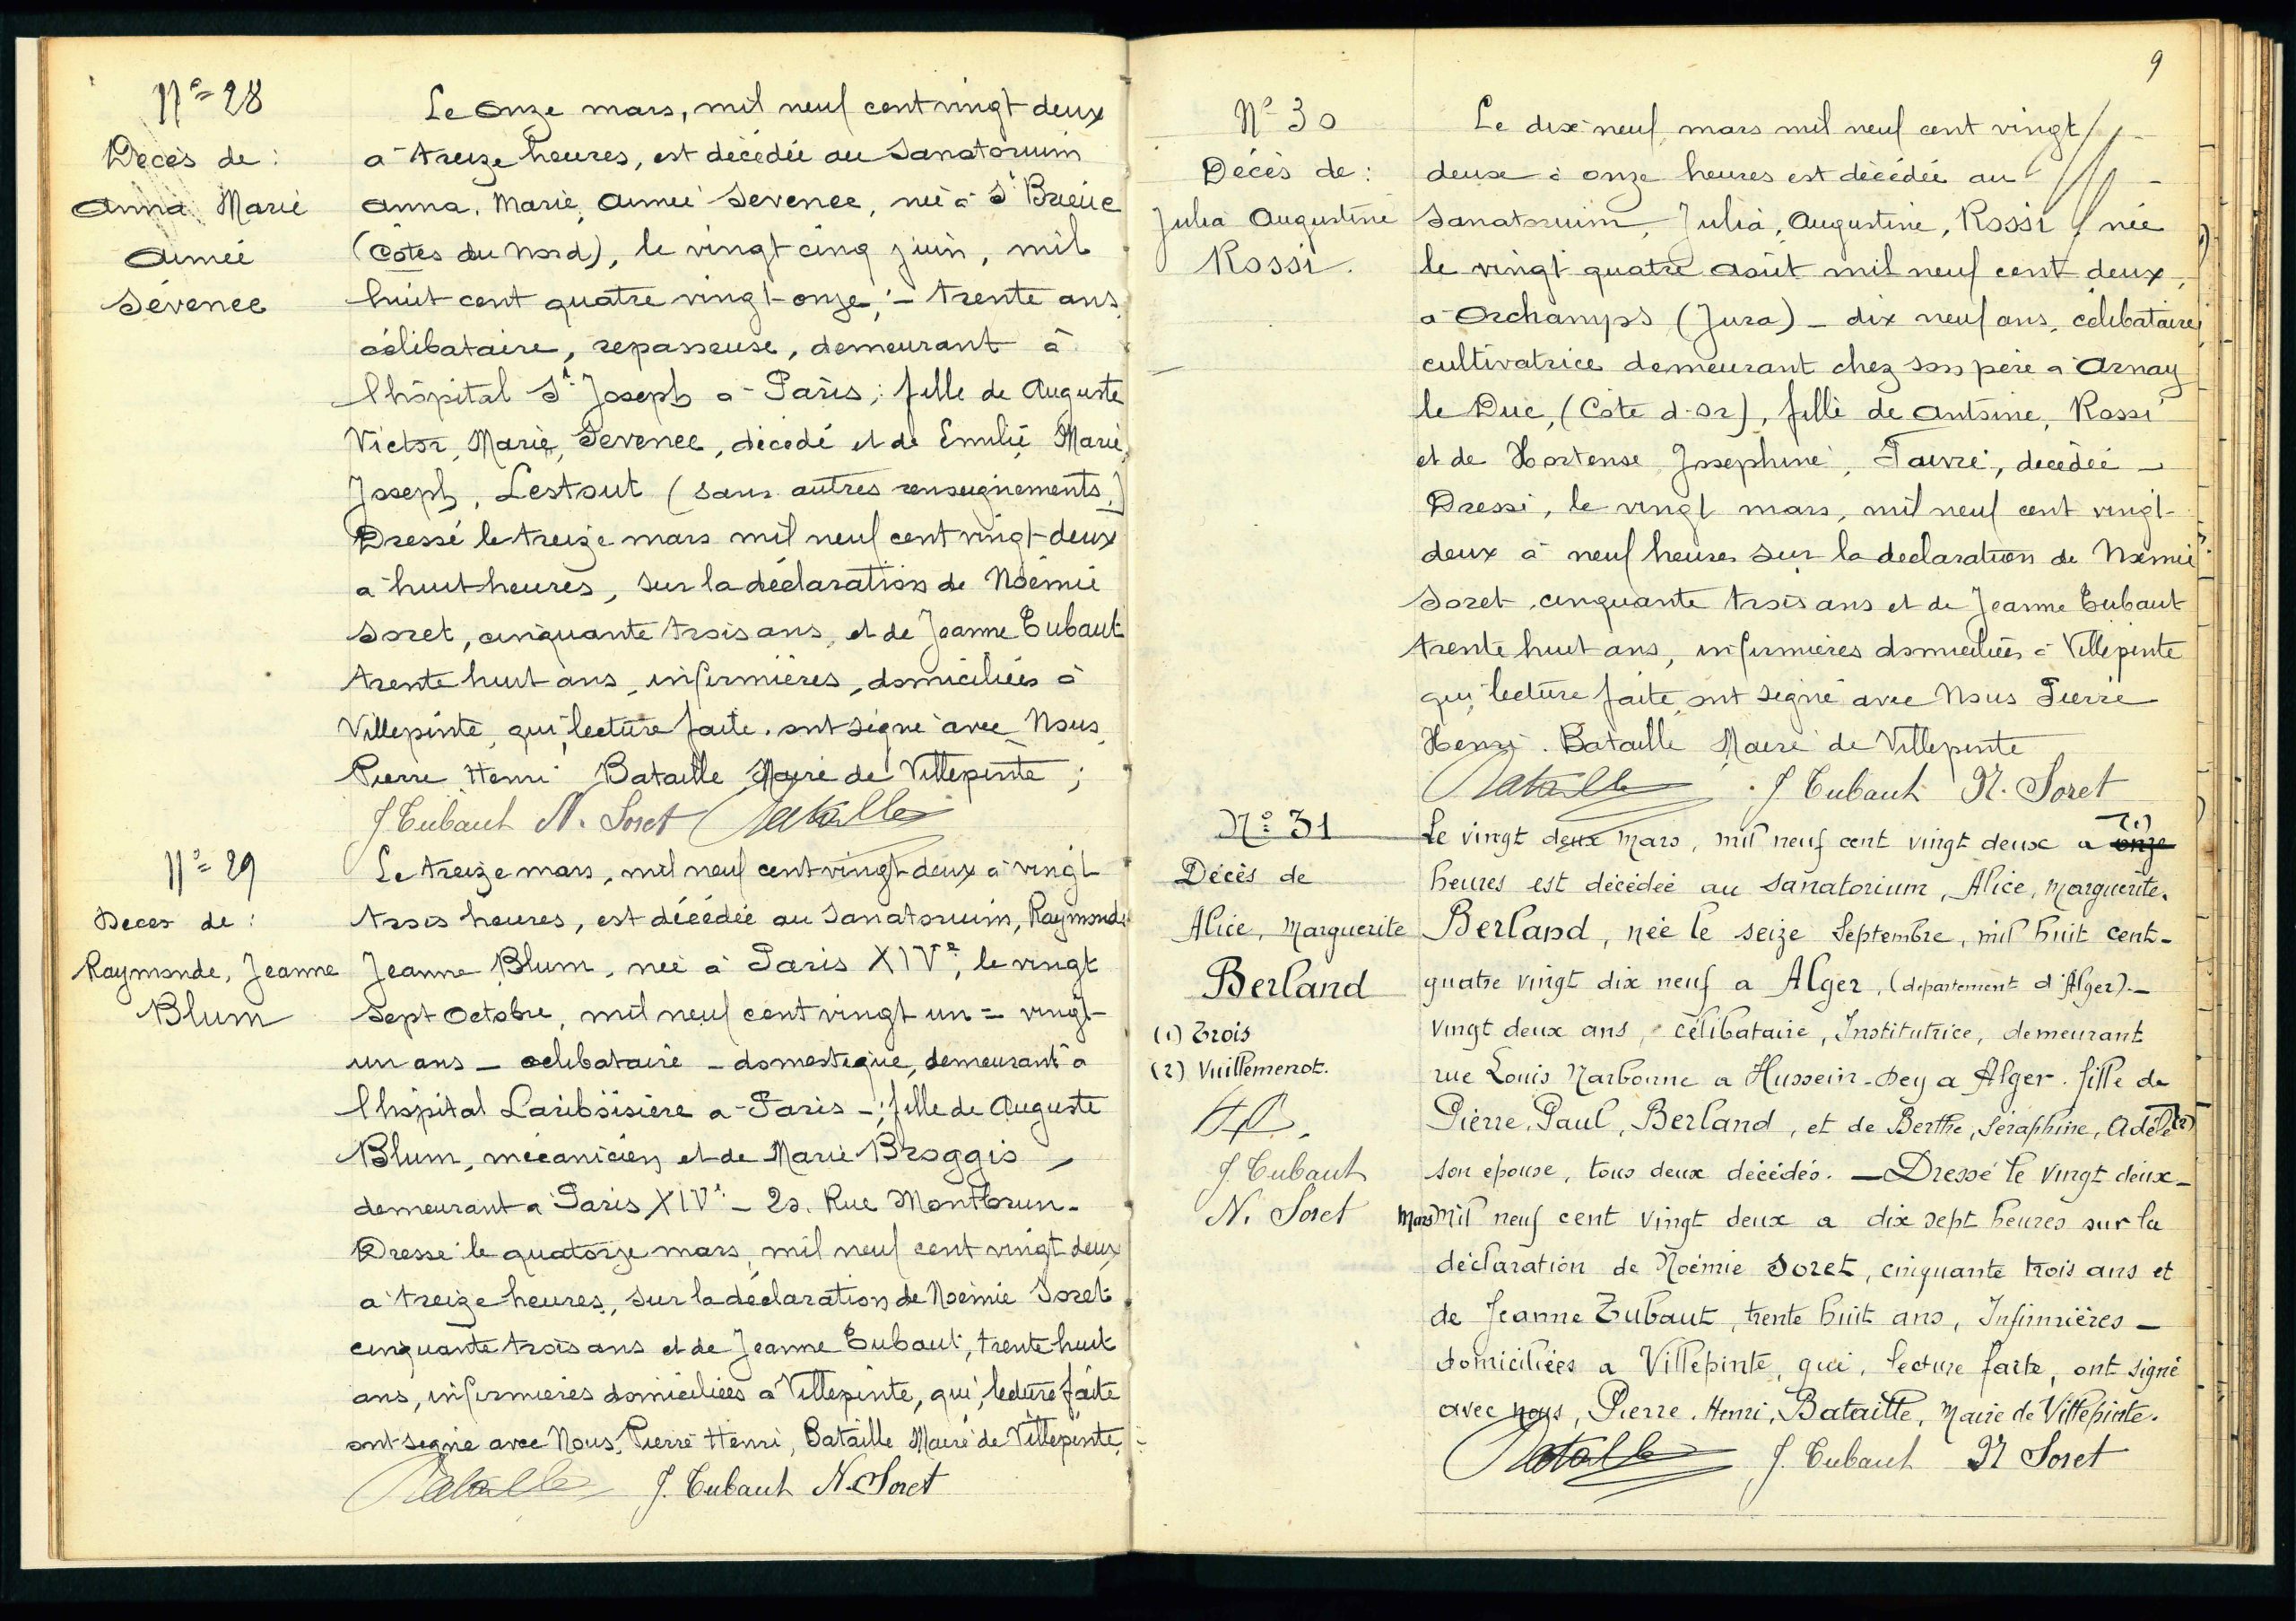 N° 28
Décès de :
Anna Marie
Aimée
Sévenee
Le onze mars, mil neuf cent vingt deux
à treize heures, est décédée au Sanatorium
Anna, Marie, Aimée Sevenee, née à St Brieuc
(Côtes du Nord), le vingt cinq juin, mil
huit cent quatre vingt-onze ;- trente ans,
célibataire, repasseuse, demeurant à
l'hôpital St Joseph à Paris ; fille de Auguste
Victor, Marie, Sevenee, décédé et de Emilie Marie
Joseph, Lestout (sans autres renseignements.)
Dressé le treize mars mil neuf cent vingt-deux
à huit heures, sur la déclaration de Noémie
Soret, cinquante trois ans, et de Jeanne Tubaut
trente huit ans, infirmières, domiciliées à
Villepinte, qui, lecture faite, ont signé avec Nous
Pierre Henri Bataille Maire de Villepinte ;
J Tubaut N. Soret Bataille
N° 29
Décès de :
Raymonde, Jeanne
Blum
Le treize mars, mil neuf cent vingt deux à vingt
trois heures, est décédée au Sanatorium, Raymonde
Jeanne Blum, née à Paris XIVe, le vingt
sept Octobre, mil neuf cent vingt un = vingt-
un ans - célibataire - domestique, demeurant à
l'hôpital Lariboisière à Paris - ; fille de Auguste
Blum, mécanicien et de Marie Broggis,
demeurant à Paris XIVe - 20. Rue Montbrun.
Dressé le quatorze mars, mil neuf cent vingt deux
à treize heures, sur la déclaration de Noémie Soret
cinquante trois ans et de Jeanne Tubaut, trente huit
ans, infirmières domiciliées à Villepinte, qui, lecture faite
ont signé avec Nous, Pierre Henri, Bataille Maire de Villepinte.
Bataille J. Tubaut N. Soret
9
N° 30
Décès de :
Julia Augustine
Rossi.
Le dix-neuf mars mil neuf cent vingt
deux à onze heures est décédée au
Sanatorium, Julia, Augustine, Rossi, née
le vingt quatre août mil neuf cent deux,
à Orchamps (Jura) - dix neuf ans, célibataire,
cultivatrice demeurant chez son père à Arnay
le Duc, (Côte d'Or), fille de Antoine, Rossi
et de Hortense Joséphine, Faivre, décédée -
Dressé, le vingt mars, mil neuf cent vingt-
deux à neuf heures sur la déclaration de Noémie
Soret, cinquante trois ans et de Jeanne Tubaut
trente huit ans, infirmières domiciliées à Villepinte
qui, lecture faite, ont signé avec Nous Pierre
Henri Bataille Maire de Villepinte
Bataille J Tubaut N. Soret
N° 31
Décès de
Alice, Marguerite
Berland
(1) Trois
(2) Vuillemenot.
J. Tubaut
N. Soret
Le vingt deux Mars, mil neuf cent vingt deux a onze (1)
heures est décédée au Sanatorium, Alice, Marguerite.
Berland, née le seize Septembre, mil huit cent-
quatre vingt dix neuf a Alger, (departement d'Alger).-
vingt deux ans, célibataire, Institutrice, demeurant
rue Louis Narbonne a Hussein-Dey a Alger. fille de
Pierre, Paul, Berland, et de Berthe, Séraphine, Adèle (2)
son épouse, tous deux décédés. - Dressé le vingt deux-
Mars mil neuf cent vingt deux a dix sept heures sur la
déclaration de Noémie Soret, cinquante trois ans et
de Jeanne Tubaut, trente huit ans, Infirmières -
domiciliées a Villepinte, qui, lecture faite, ont signé
avec nous, Pierre, Henri, Bataille, Maire de Villepinte.
Bataille J. Tubaut N Soret